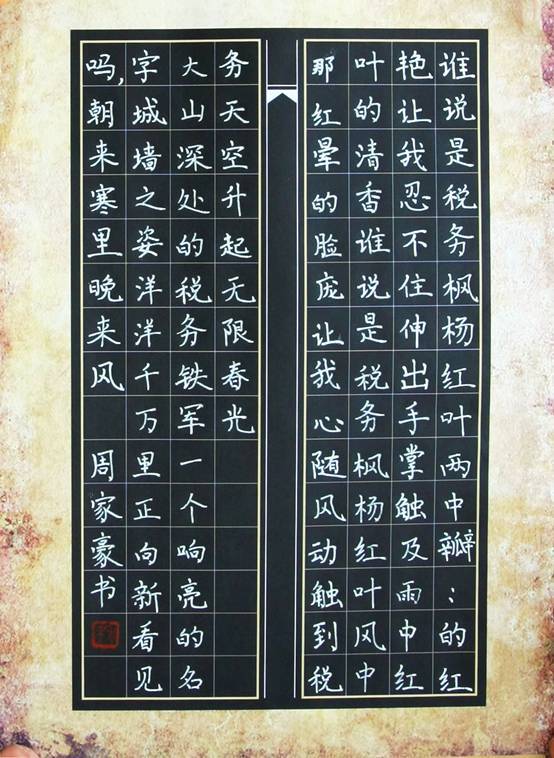 谁说是税务枫杨红叶两中瓣：的红
艳让我忍不住伸出手掌触及雨中红
叶的清香谁说是税务枫杨红叶风中
那红晕的脸庞让我心随风动触到税
务天空升起无限春光
大山深处的税务铁军一个响亮的名
字城墙之姿洋洋千万里正向新看见
吗,朝来寒里晚来风 周家豪书